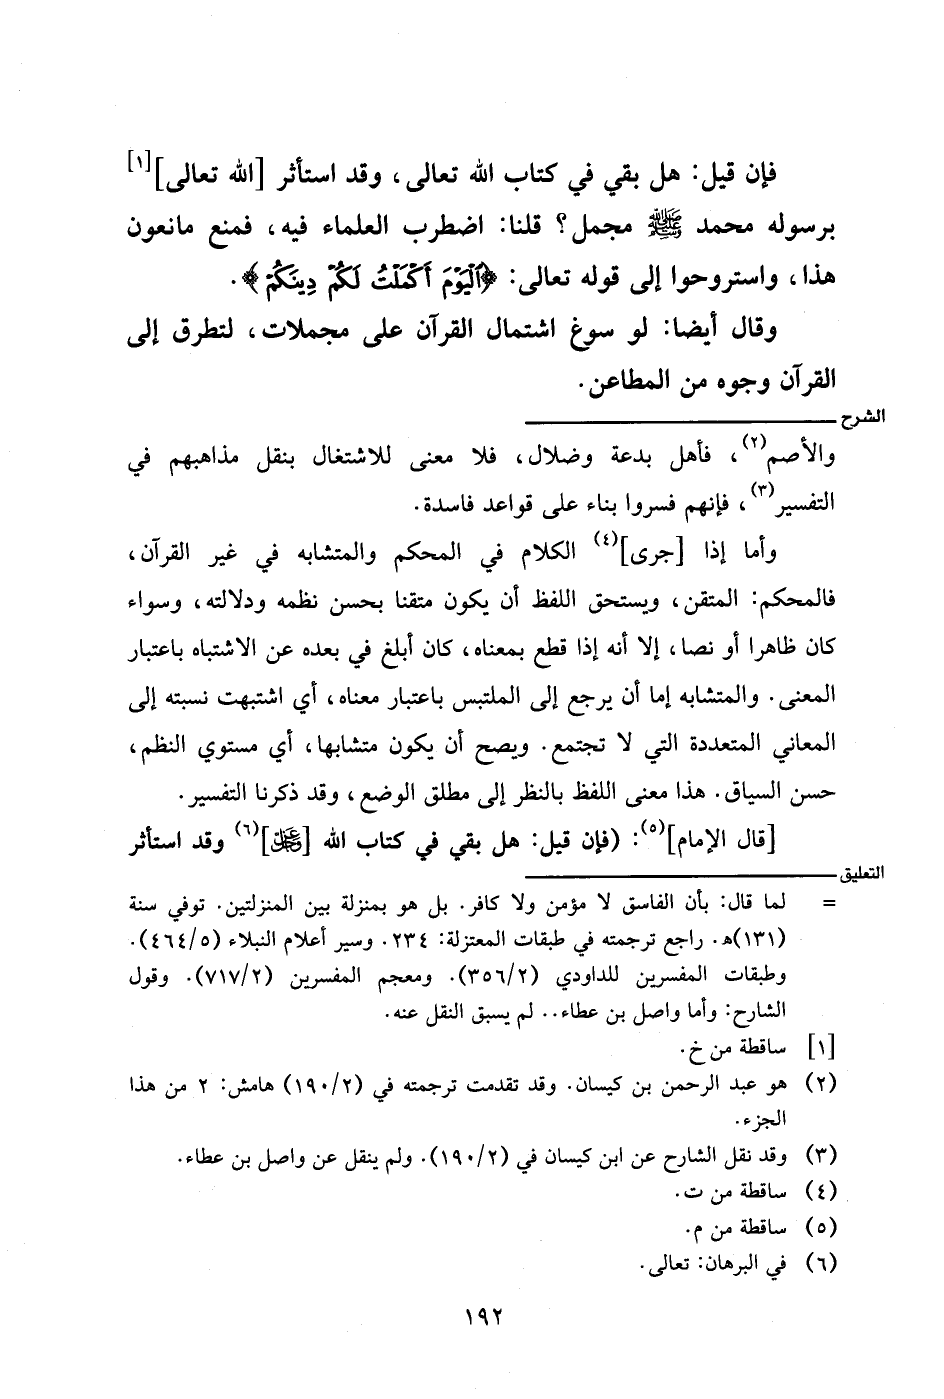 فإن قيل: هل بقي في كتاب الله تعالى، وقد استأثر [الله تعالى][١]
برسوله محمد ﷺ مجمل؟ قلنا: اضطرب العلماء فيه، فمنع مانعون
هذا، واستروحوا إلى قوله تعالى: ﴿ٱلۡيَوۡمَ أَكۡمَلۡتُ لَكُمۡ دِينَكُمۡ﴾.
وقال أيضا: لو سوغ اشتمال القرآن على مجملات، لتطرق إلى
القرآن وجوه من المطاعن.
الشرح
والأصم(٢)، فأهل بدعة وضلال، فلا معنى للاشتغال بنقل مذاهبهم في
التفسير(٣)، فإنهم فسروا بناء على قواعد فاسدة.
وأما إذا [جرى](٤) الكلام في المحكم والمتشابه في غير القرآن،
فالمحكم: المتقن، ويستحق اللفظ أن يكون متقنا بحسن نظمه ودلالته، وسواء
كان ظاهرا أو نصا، إلا أنه إذا قطع بمعناه، كان أبلغ في بعده عن الاشتباه باعتبار
المعنى. والمتشابه إما أن يرجع إلى الملتبس باعتبار معناه، أي اشتبهت نسبته إلى
المعاني المتعددة التي لا تجتمع. ويصح أن يكون متشابها، أي مستوي النظم،
حسن السياق. هذا معنى اللفظ بالنظر إلى مطلق الوضع، وقد ذكرنا التفسير.
[قال الإمام](٥): (فإن قيل: هل بقي في كتاب الله [عز وجل](٦) وقد استأثر
التعليق
= لما قال: بأن الفاسق لا مؤمن ولا كافر. بل هو بمنزلة بين المنزلتين. توفي سنة
(١٣١)هـ. راجع ترجمته في طبقات المعتزلة: ٢٣٤. وسير أعلام النبلاء (٤٦٤/٥).
وطبقات المفسرين للداودي (٣٥٦/٢). ومعجم المفسرين (٧١٧/٢). وقول
الشارح: وأما واصل بن عطاء.. لم يسبق النقل عنه.
[١] ساقطة من خ.
(٢) هو عبد الرحمن بن كيسان. وقد تقدمت ترجمته في (١٩٠/٢) هامش: ٢ من هذا
الجزء.
(٣) وقد نقل الشارح عن ابن كيسان في (١٩٠/٢). ولم ينقل عن واصل بن عطاء.
(٤) ساقطة من ت.
(٥) ساقطة من م.
(٦) في البرهان: تعالى.
١٩٢